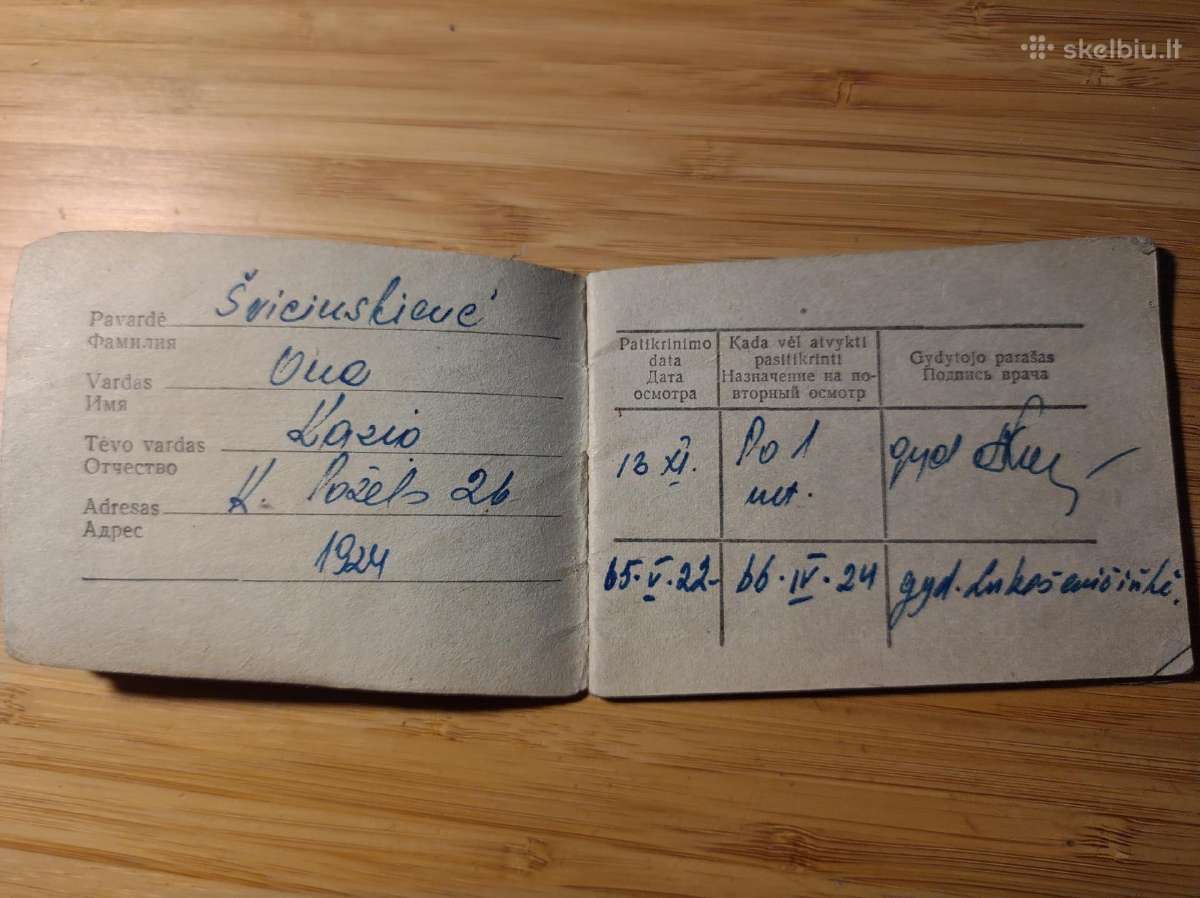 skelbiu.lt
Pavardė Šviciuskienė
Фамилия
Vardas Ona
Имя
Tėvo vardas Kazio
Отчество
Adresas K. Poželos 26
Адрес
1924
Patikrinimo data
Дата осмотра
Kada vėl atvykti pasitikrinti
Назначение на повторный осмотр
Gydytojo parašas
Подпись врача
13 XI. Po 1 gyd
met.
65·V·22- 66·IV·24 gyd. Lukoševičiūtė.